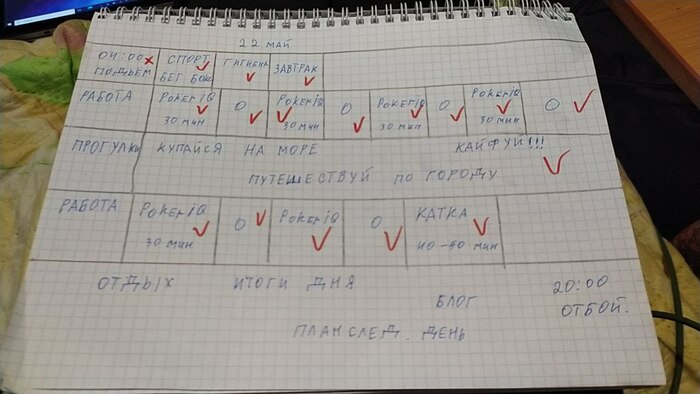 22 МАЙ
04:00 СПОРТ ГИГИЕНА ЗАВТРАК
ПОДЪЕМ БЕГ БОКС
РАБОТА PokeriQ O PokeriQ O PokeriQ O PokeriQ O
30 мин 30 мин 30 мин 30 мин
ПРОГУЛКИ КУПАЙСЯ НА МОРЕ КАЙФУЙ!!!
ПУТЕШЕСТВУЙ ПО ГОРОДУ
РАБОТА PokeriQ O PokeriQ O КАТКА
30 мин 40-50 мин
ОТДЫХ ИТОГИ ДНЯ 20:00
БЛОГ ОТБОЙ.
ПЛАН СЛЕД. ДЕНЬ